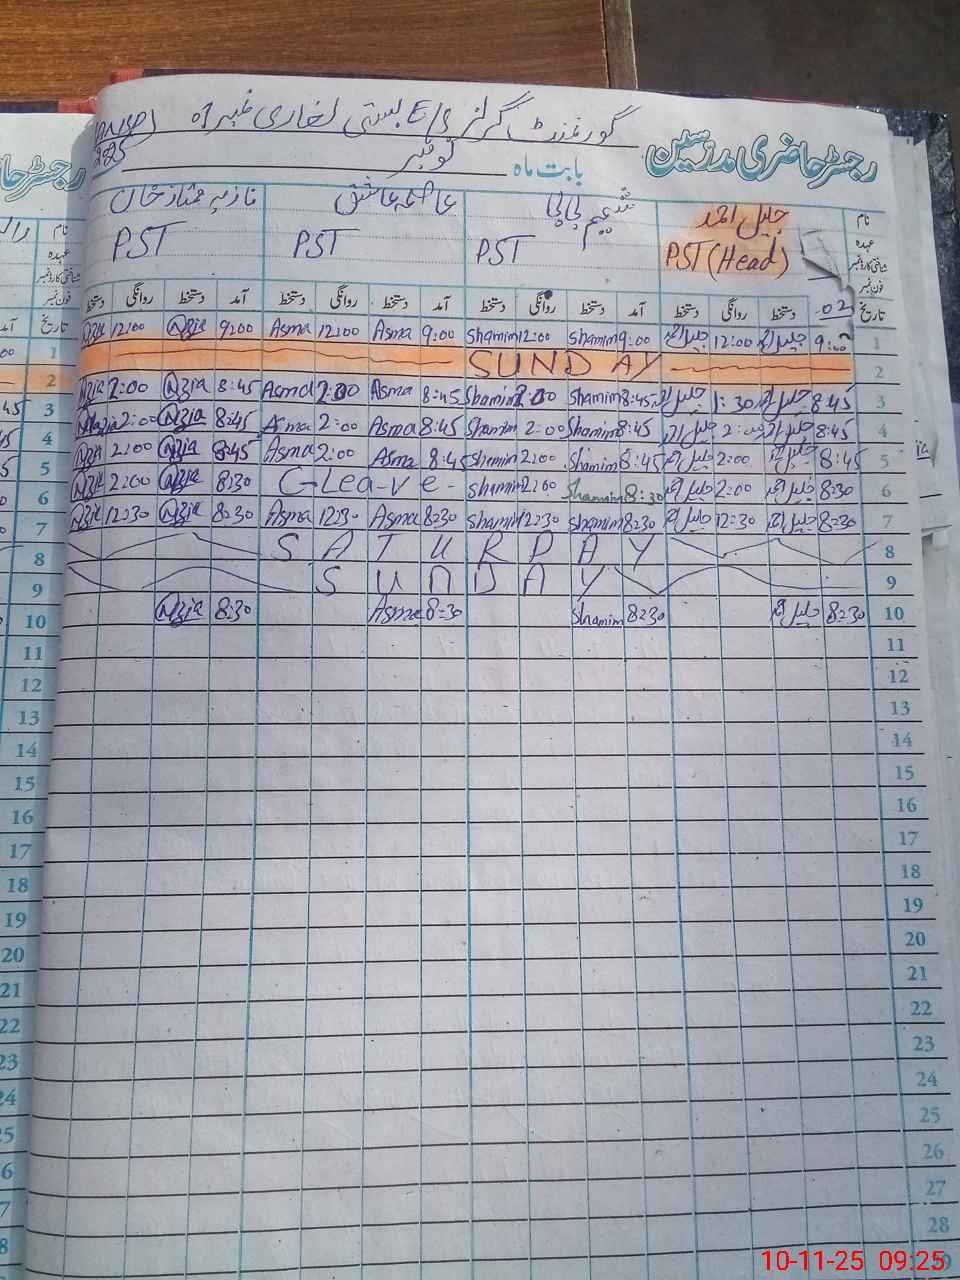 گورنمنٹ گرلز E/S بستی لغاری نمبر 01
رجسٹر حاضری مدرسین
بابت ماہ نومبر 2025
نام جلیل احمد شمیم بی بی عاصمہ عاشق نازیہ ممتاز خان
عہدہ PST (Head) PST PST PST
شناختی کارڈ نمبر
فون نمبر
تاریخ آمد دستخط روانگی دستخط آمد دستخط روانگی دستخط آمد دستخط روانگی دستخط آمد دستخط روانگی دستخط
1 9:00 جلیل احمد 12:00 جلیل احمد 9:00 Shamim 12:00 Shamim 9:00 Asma 12:00 Asma 9:00 Nazia 12:00 Nazia
2 SUNDAY
3 8:45 جلیل احمد 1:30 جلیل احمد 8:45 Shamim 2:00 Shamim 8:45 Asma 2:00 Asma 8:45 Nazia 2:00 Nazia
4 8:45 جلیل احمد 2:00 جلیل احمد 8:45 Shamim 2:00 Shamim 8:45 Asma 2:00 Asma 8:45 Nazia 2:00 Nazia
5 8:45 جلیل احمد 2:00 جلیل احمد 8:45 Shamim 2:00 Shamim 8:45 Asma 2:00 Asma 8:45 Nazia 2:00 Nazia
6 8:30 جلیل احمد 2:00 جلیل احمد 8:30 Shamim 2:00 Shamim C-Lea-ve- 8:30 Nazia 2:00 Nazia
7 8:30 جلیل احمد 12:30 جلیل احمد 8:30 Shamim 12:30 Shamim 8:30 Asma 12:30 Asma 8:30 Nazia 12:30 Nazia
8 SATURDAY
9 SUNDAY
10 8:30 جلیل احمد 8:30 Shamim 8:30 Asma 8:30 Nazia
11
12
13
14
15
16
17
18
19
20
21
22
23
24
25
26
27
28
10-11-25 09:25